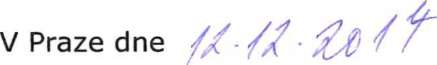 V Praze dne 12.12.2014